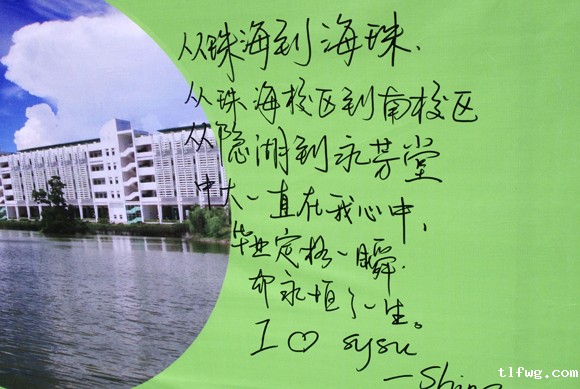 从珠海到海珠.
从珠海校区到南校区
从隐湖到永芳堂
中大一直在我心中,
毕业定格一瞬.
却永恒了一生。
I ♡ sysu
—Shing
tlfwg.com